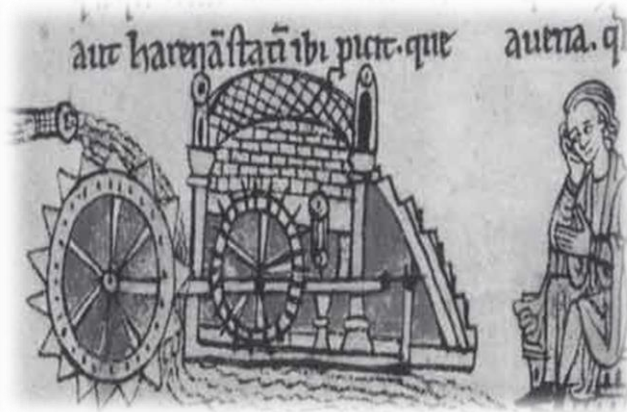 aut harenā statī ibi picit. que auena. q